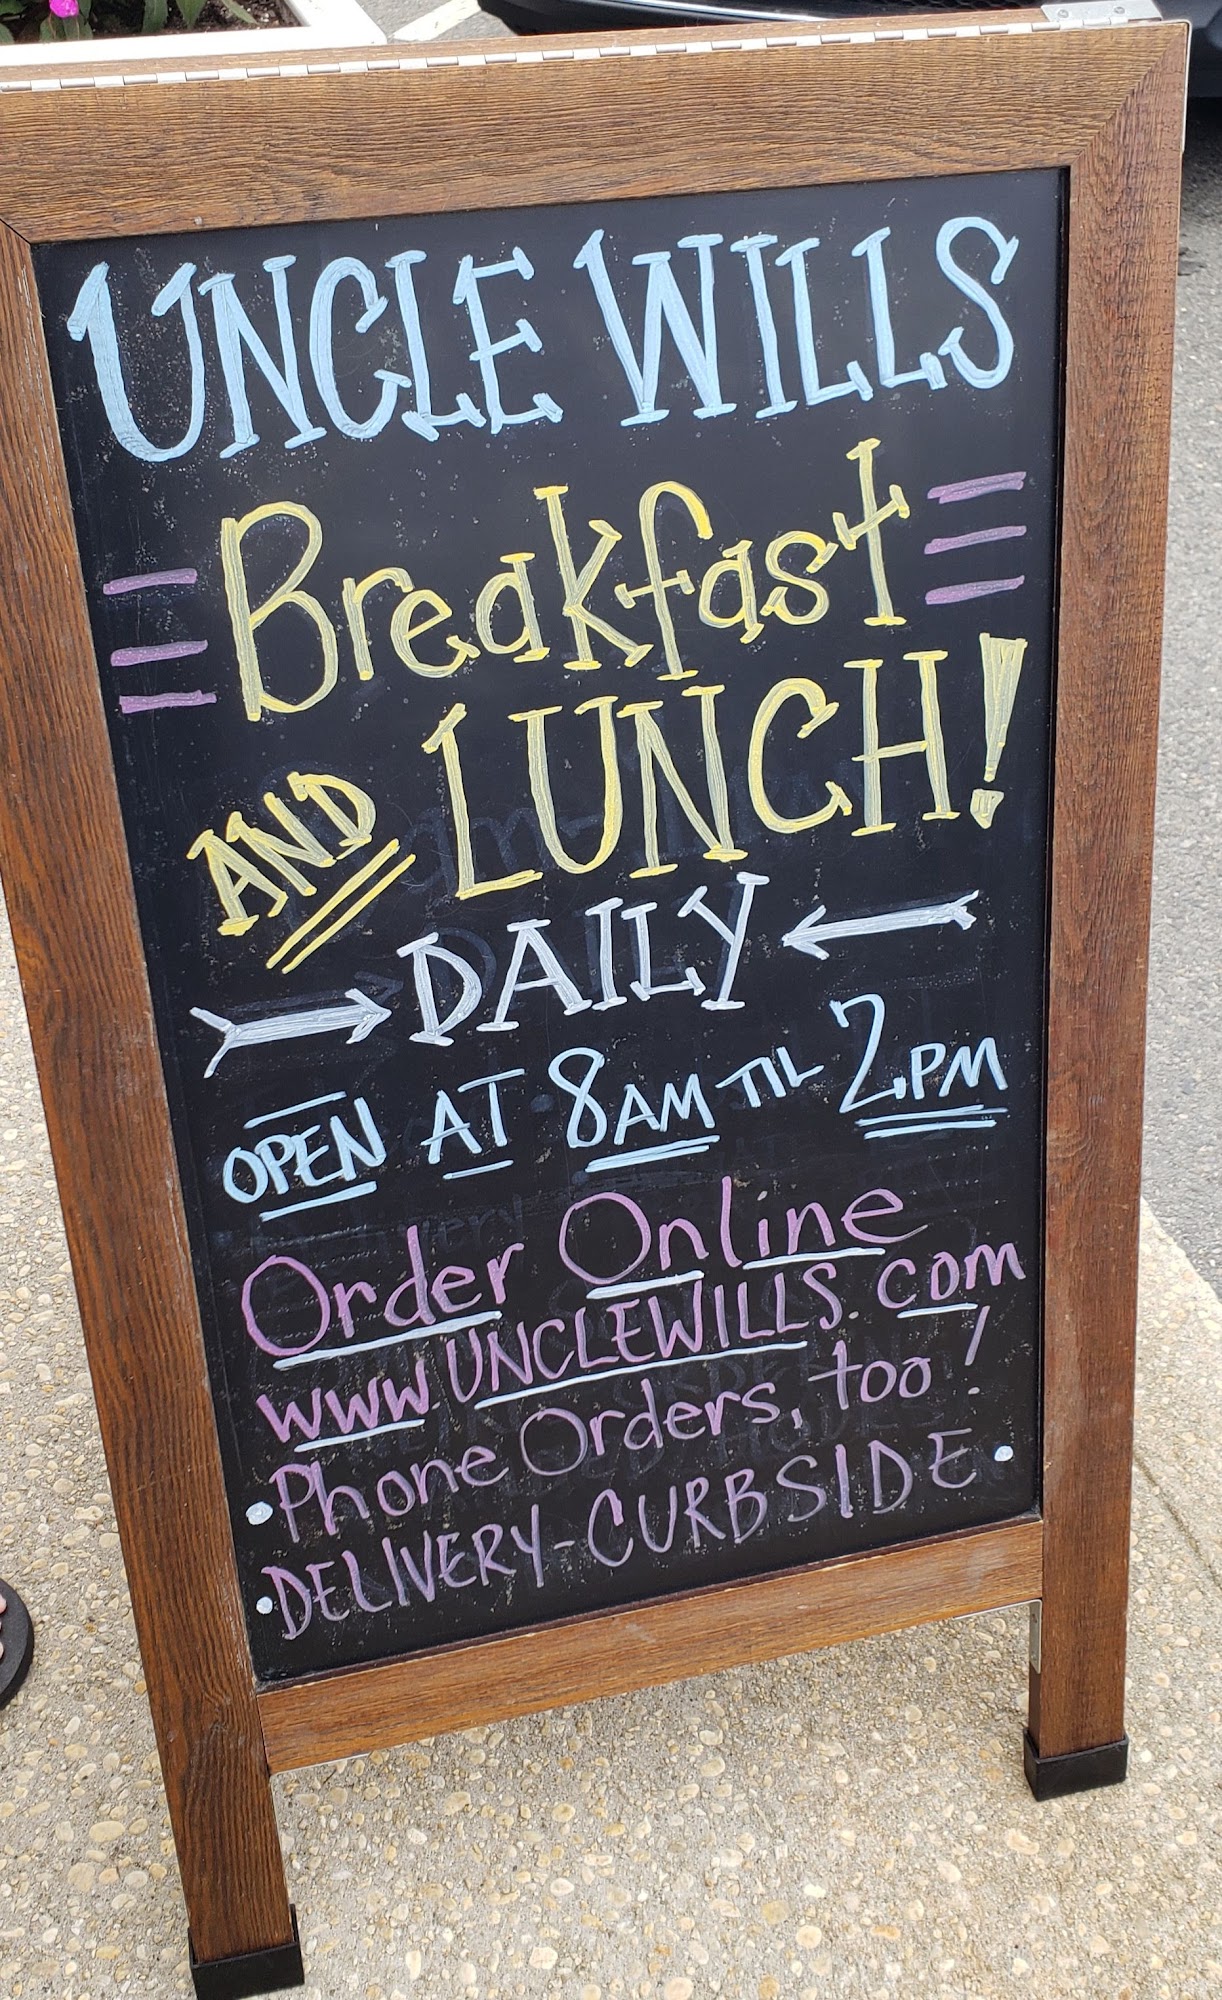 UNCLE WILLS
Breakfast
AND LUNCH!
DAILY
OPEN AT 8AM TIL 2PM
Order Online
www.UNCLEWILLS.com
• Phone Orders, too!
• DELIVERY-CURBSIDE •